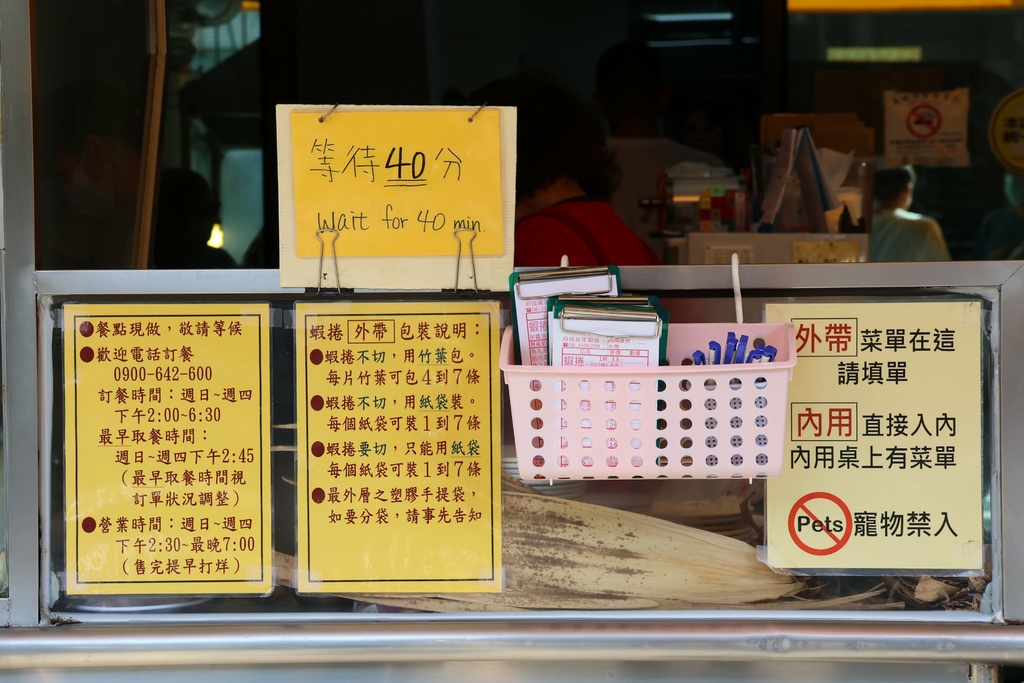 等待40分
Wait for 40 min.
●餐點現做，敬請等候
●歡迎電話訂餐
0900-642-600
訂餐時間：週日~週四
下午2:00~6:30
最早取餐時間：
週日~週四下午2:45
（最早取餐時間視
訂單狀況調整）
●營業時間：週日~週四
下午2:30~最晚7:00
（售完提早打烊）
蝦捲 外帶 包裝說明：
●蝦捲不切，用竹葉包。
每片竹葉可包4到7條
●蝦捲不切，用紙袋裝。
每個紙袋可裝1到7條
●蝦捲要切，只能用紙袋
每個紙袋可裝1到7條
●最外層之塑膠手提袋，
如要分袋，請事先告知
蝦捲
外帶 菜單在這
請填單
內用 直接入內
內用桌上有菜單
Pets 寵物禁入